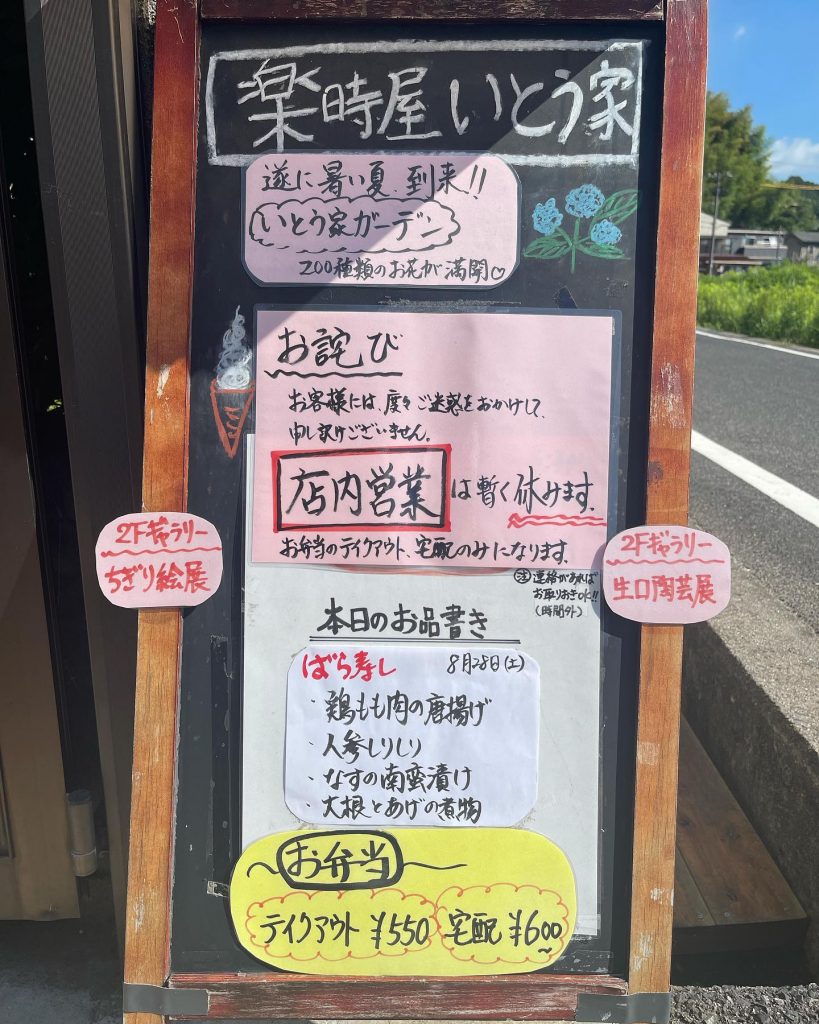 楽時屋いとう家
遂に暑い夏、到来!!
いとう家ガーデン
200種類のお花が満開♡
お詫び
お客様には、度々ご迷惑をおかけして、
申し訳けございません。
店内営業は暫く休みます。
お弁当のテイクアウト、宅配のみになります。
注 連絡があれば
お取りおきOK!!
(時間外)
2Fギャラリー
ちぎり絵展
2Fギャラリー
生口陶芸展
本日のお品書き
ばら寿し 8月28日(土)
・鶏もも肉の唐揚げ
・人参しりしり
・なすの南蛮漬け
・大根とあげの煮物
お弁当
テイクアウト ¥550 宅配 ¥600~